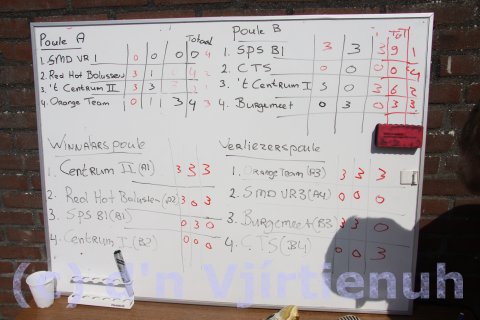 Poule A
Totaal
1. SMD VR 1 0 0 0 0 4
2. Red Hot Bolussen 3 1 4 2
3. 't Centrum II 3 3
4. Orange Team 0 1 3 4 3
Poule B
Tot
1. SPS B1 3 3 3 9 1
2. CTS 0 0 0 0 4
3. 't Centrum I 3 0 3 6 2
4. Burgemeet 0 3 0 3 3
Winnaarspoule
1. Centrum II (A1) 3 3 3
2. Red Hot Bolussen (A2) 3 0 3
3. SPS B1 (B1) 0 3 0
4. Centrum I (B2) 0 0 0
Verliezerspoule
1. Orange Team (A3) 3 3 3
2. SMD VR3 (A4) 0 0 0
3. Burgemeet (B3) 3 3 0
4. CTS (B4) 0 0 3
(c) d'n Vjirtienuh